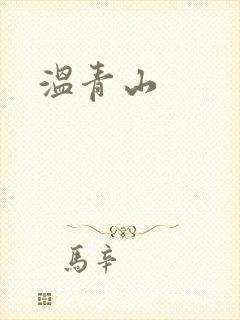 温青山
馬辛